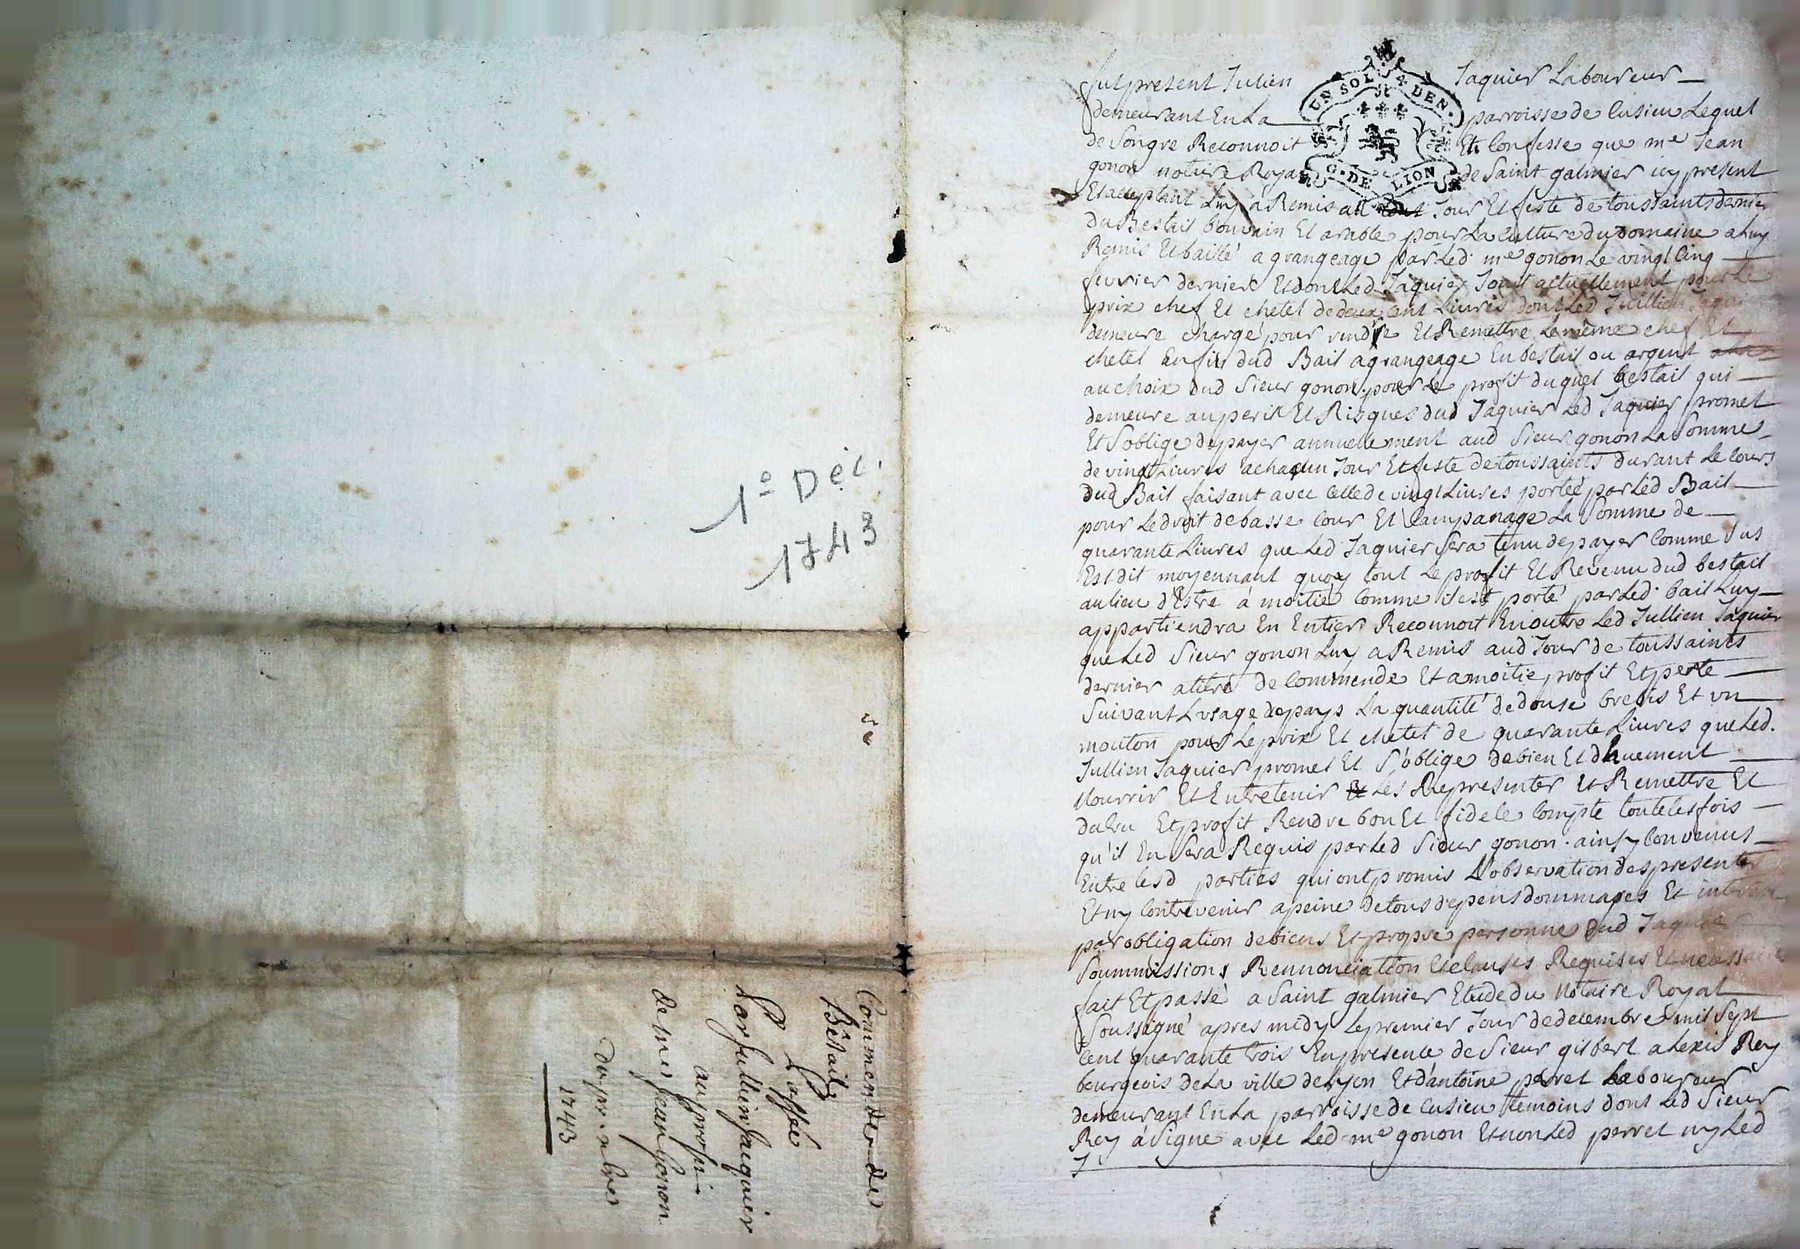 1º Déc.
1743
Commende de
Bestail
passée
par Jullien Jacquier
au profit
de me Jean Gonon
du pr xbre
1743
UN SOL 4 DEN.
G. DE LION
fut present Julien Jaquier Laboureur
demeurant En La parroisse de Cusieu Lequel
de Son gre Reconnoit Et Confesse que me Jean
gonon notaire Royal de Saint galmier icy present
Et acceptant Luy a Remis au Jour Et feste de toussaints dernier
du Bestail bouvain Et arable pour La Culture du Domaine a Luy
Remis Et baillé a grangeage par Led. me gonon Le vingt Cinq
fevrier dernier Et dont Led Jaquier Jouit actuellement pour Le
prix chef Et chetel de deux cent Livres dont Led Jullien Jaquier
demeure chargé pour rendre Et Remettre Le même chef Et
chetel En fin dud Bail a grangeage En bestail ou argent
au choix dud Sieur gonon, pour Le profit duquel bestail qui
demeure au peril Et Risques dud Jaquier Led Jaquier promet
Et Soblige de payer annuellement aud Sieur gonon La Somme
de vingt Livres a chaqun Jour Et feste de toussaints durant Le Cours
dud Bail faisant avec Celle de vingt Livres portée par Led Bail
pour Le droit de basse Cour Et Campanage La Somme de
quarante Livres que Led Jaquier Sera tenu de payer Comme Sus
Est dit moyennant quoy tout Le profit Et Revenu dud bestail
au lieu d'Estre à moitié Comme il est porté par Led. bail Luy
appartiendra En Entier Reconnoit En outre Led Jullien Jaquier
que Led Sieur gonon Luy a Remis aud Jour de toussaints
dernier a titre de Commende Et a moitie profit Et perte
Suivant L'usage de pays La quantité de douse brebis Et un
mouton pour Le prix Et chetel de quarante Livres que Led.
Jullien Jaquier promet Et S'oblige de bien Et dhuement
Nourrir Et Entretenir Les Representer Et Remettre Et
du Cru Et profit Rendre bon Et fidele Compte toutes les fois
qu'il En Sera Requis par Led Sieur gonon. ainsy Convenus
Entre lesd parties qui ont promis L'observation des presentes
Et ny Contrevenir a peine de tous depens dommages Et interets
par obligation de biens Et propre personne dud Jaquier
Soummissions Rennonciation Et clauses Requises Et necessaires
fait Et passé a Saint galmier Etude du Notaire Royal
Soussigné apres midy Le premier Jour de decembre mil Sept
Cent quarante trois En presence de Sieur gilbert alexis Rey
bourgeois de La ville de Lyon Et d'antoine perret Laboureur
demeurant En La parroisse de Cusieu temoins dont Led Sieur
Rey à Signé avec Led. me gonon Et non Led perret ny Led
J